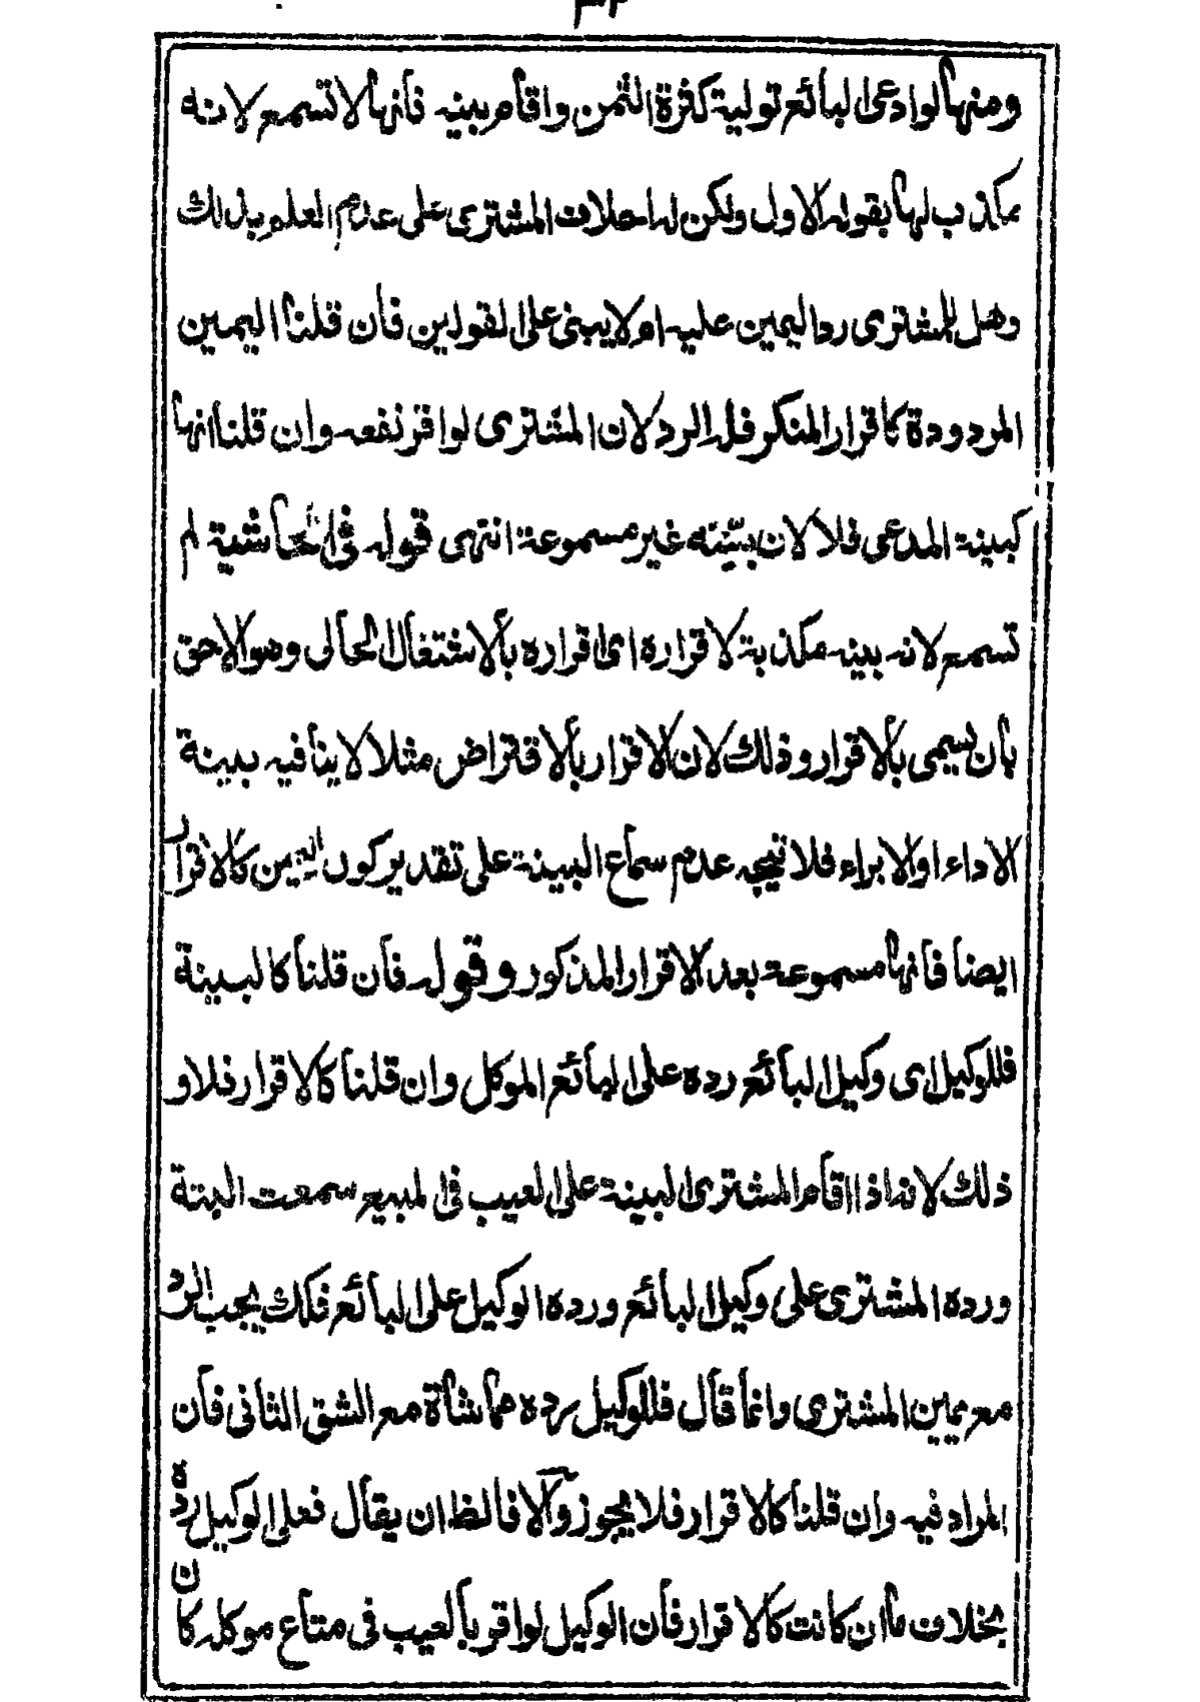 ومنها لو ادعى البائع تولية كثرة الثمن واقام ببينه فانها لا تسمع لانه
مكذب لها بقوله الاول ولكن له احلاف المشترى على عدم العلم بذلك
وهل للمشترى رد اليمين عليه ام لا يبنى على القولين فان قلنا اليمين
المردودة كاقرار المنكر فله الرد لان المشترى لو اقر نفعه وان قلنا انها
كبينة المدعى فلا لان بينته غير مسموعة انتهى قوله فى الحاشية لم
تسمع لانه بينه مكذبة لاقراره اى اقراره بالاشتغال الحالى وهو الاحق
بان يسمى بالاقرار وذلك لان الاقرار بالاقتراض مثلا لا ينافيه بينة
الاداء او الابراء فلا نتيجه عدم سماع البينة على تقدير كون اليمين كالاقرار
ايضا فانها مسموعة بعد الاقرار المذكور و قوله فان قلنا كالبينة
فللوكيل اى وكيل البائع رده على البائع الموكل وان قلنا كالاقرار فلا و
ذلك لانه اذا اقام المشترى البينة على العيب فى المبيع سمعت البتة
ورده المشترى على وكيل البائع ورده الوكيل على البائع فكك يجب الرد
مع يمين المشترى وانما قال فللوكيل رده مماشاة مع الشق الثانى فان
المراد فيه وان قلنا كالاقرار فلا يجوز والا فالظ ان يقال فعلى الوكيل رده
بخلاف ما ان كانت كالاقرار فان الوكيل لو اقر بالعيب فى متاع موكله كان